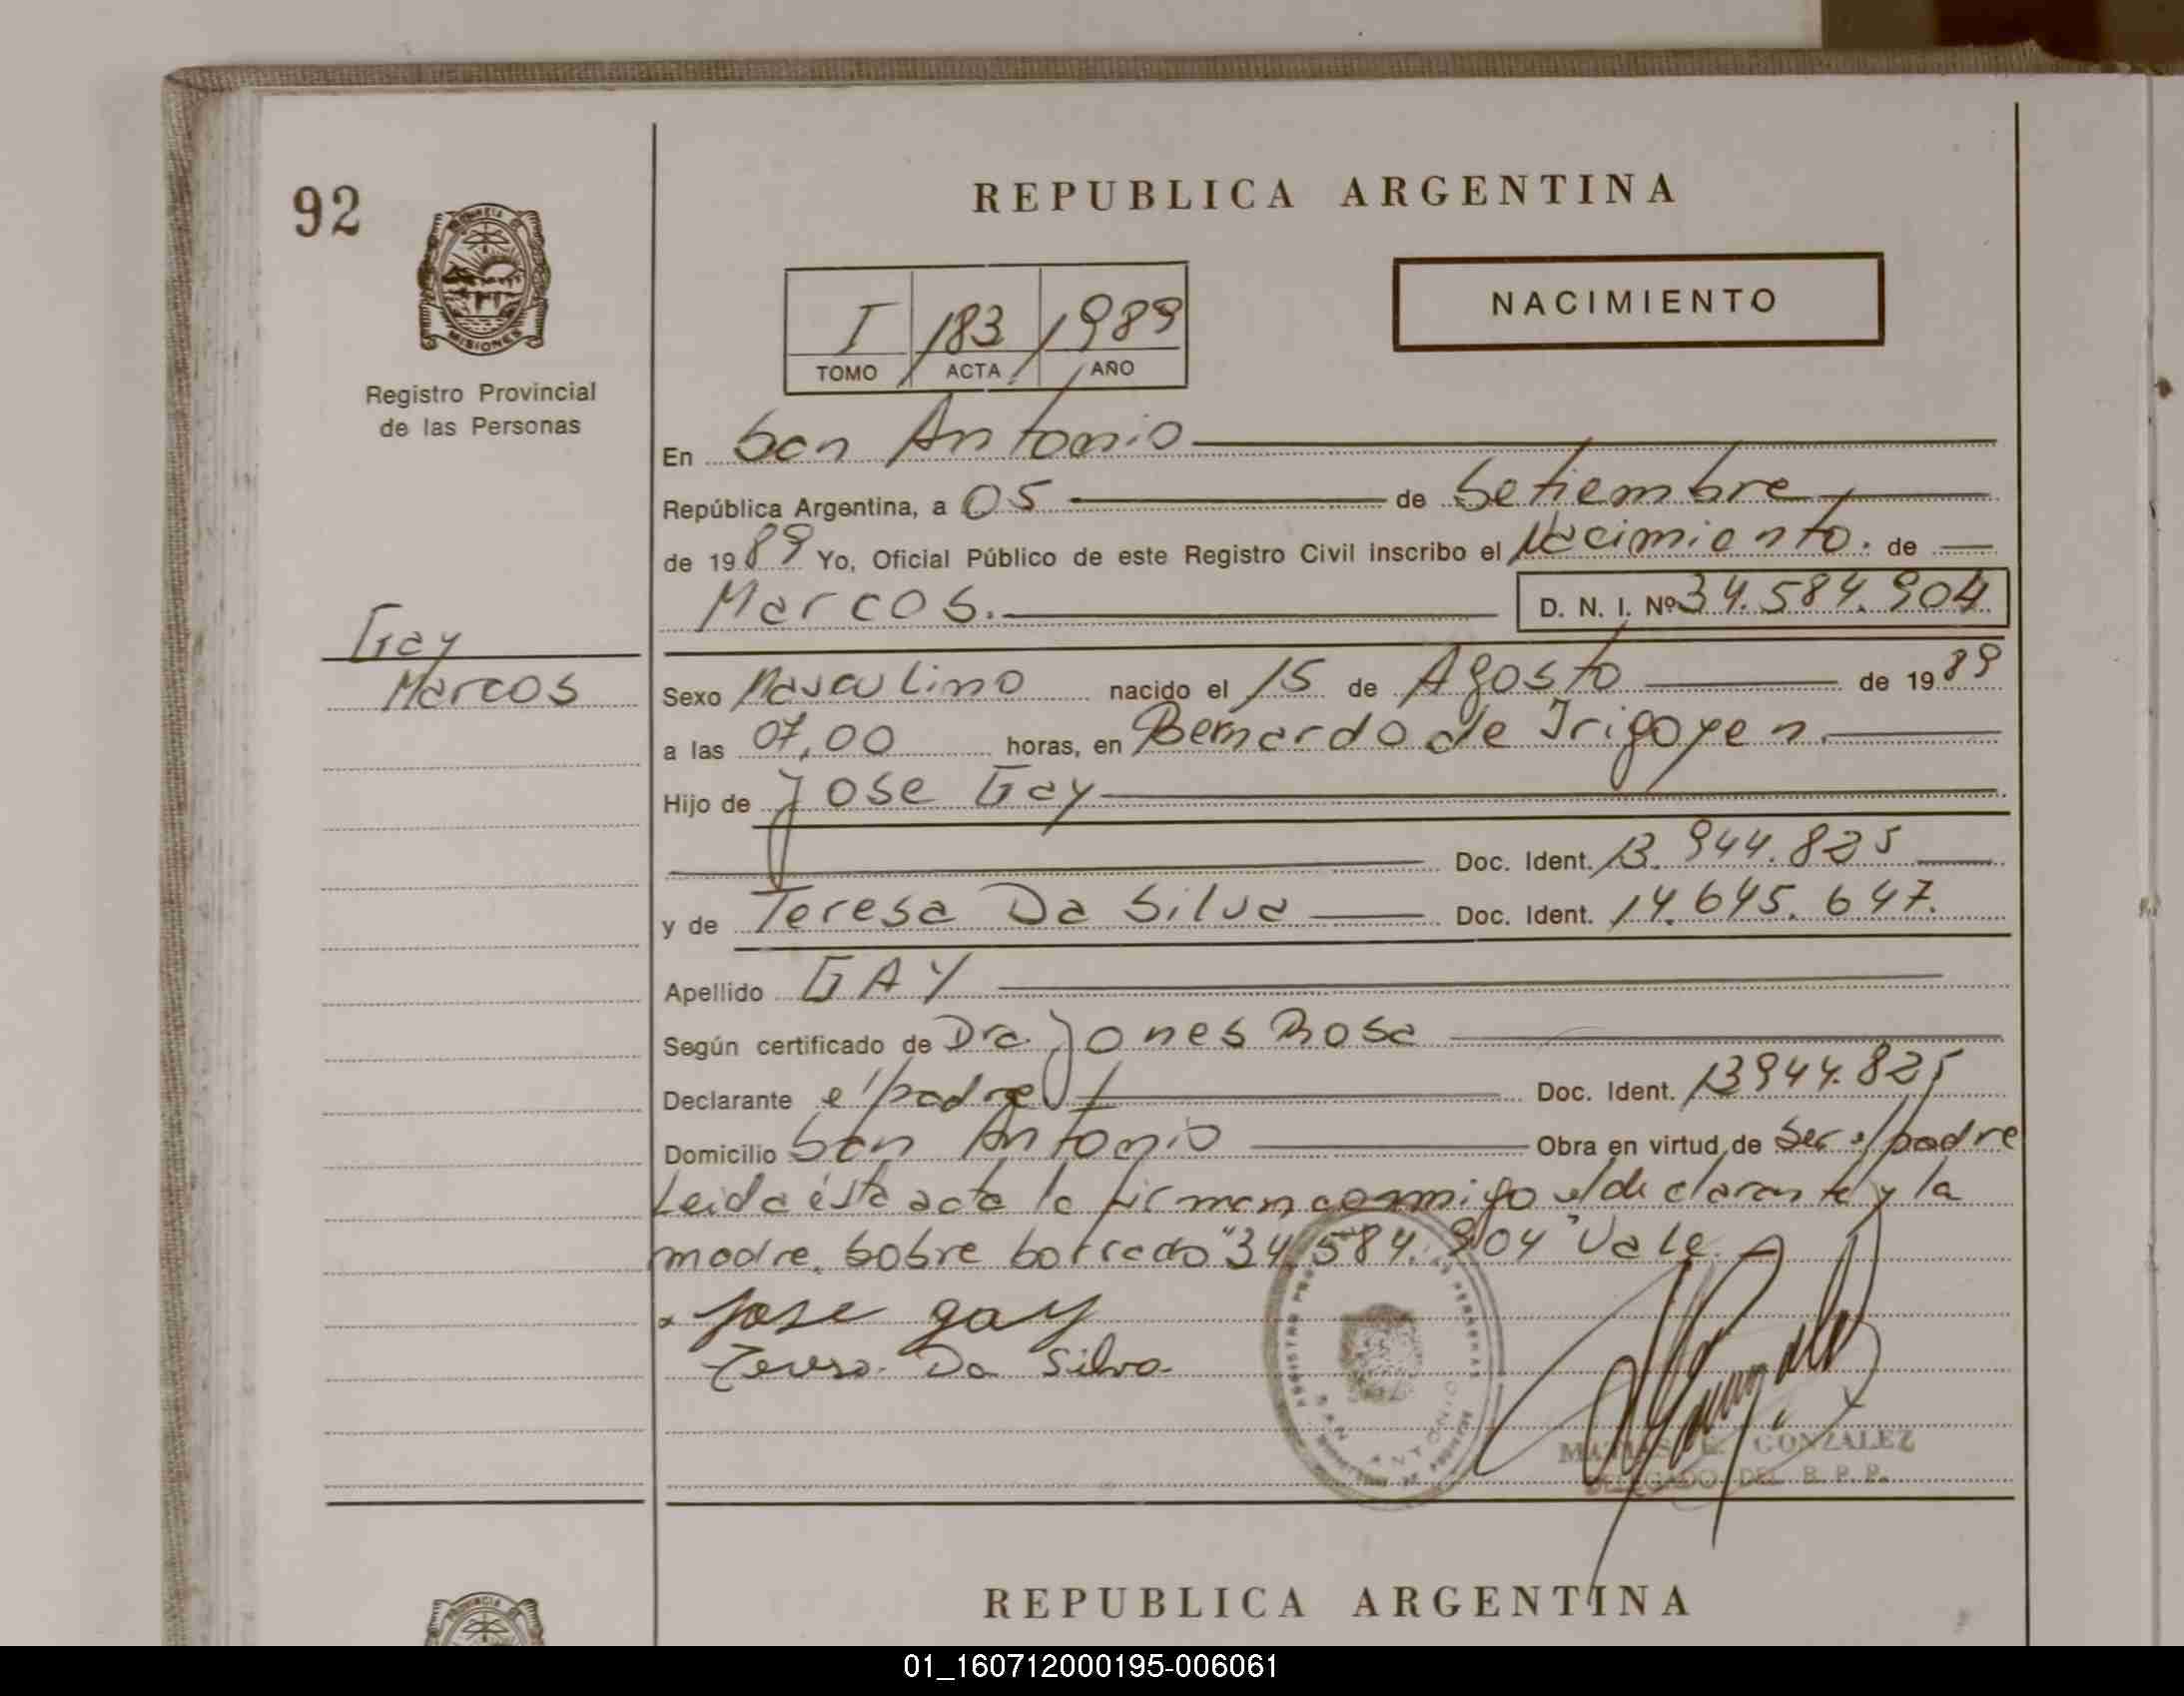 92
REPUBLICA ARGENTINA
NACIMIENTO
I 183 1989
TOMO ACTA AÑO
MISIONES
Registro Provincial
de las Personas
En San Antonio
República Argentina, a 05 de Setiembre
de 1989 Yo, Oficial Público de este Registro Civil inscribo el Nacimiento. de
Marcos. D. N. I. Nº 34.584.904
Gay
Marcos
Sexo Masculino nacido el 15 de Agosto de 1989
a las 07,00 horas, en Bernardo de Irigoyen.
Hijo de Jose Gay
Doc. Ident. 13.944.825
y de Teresa Da Silva Doc. Ident. 14.645.647.
Apellido GAY
Según certificado de Dra. Jones Rosa
Declarante el padre Doc. Ident. 13944.825
Domicilio San Antonio Obra en virtud de Ser el padre
Leida ésta acta la firman conmigo el declarante y la
madre. Sobre borrado "34.584.904" Vale.
Jose gay
Teresa Da Silva
SAN ANTONIO
MATIAS E. GONZALEZ
DELEGADO DEL R. P. P.
REPUBLICA ARGENTINA
01_160712000195-006061